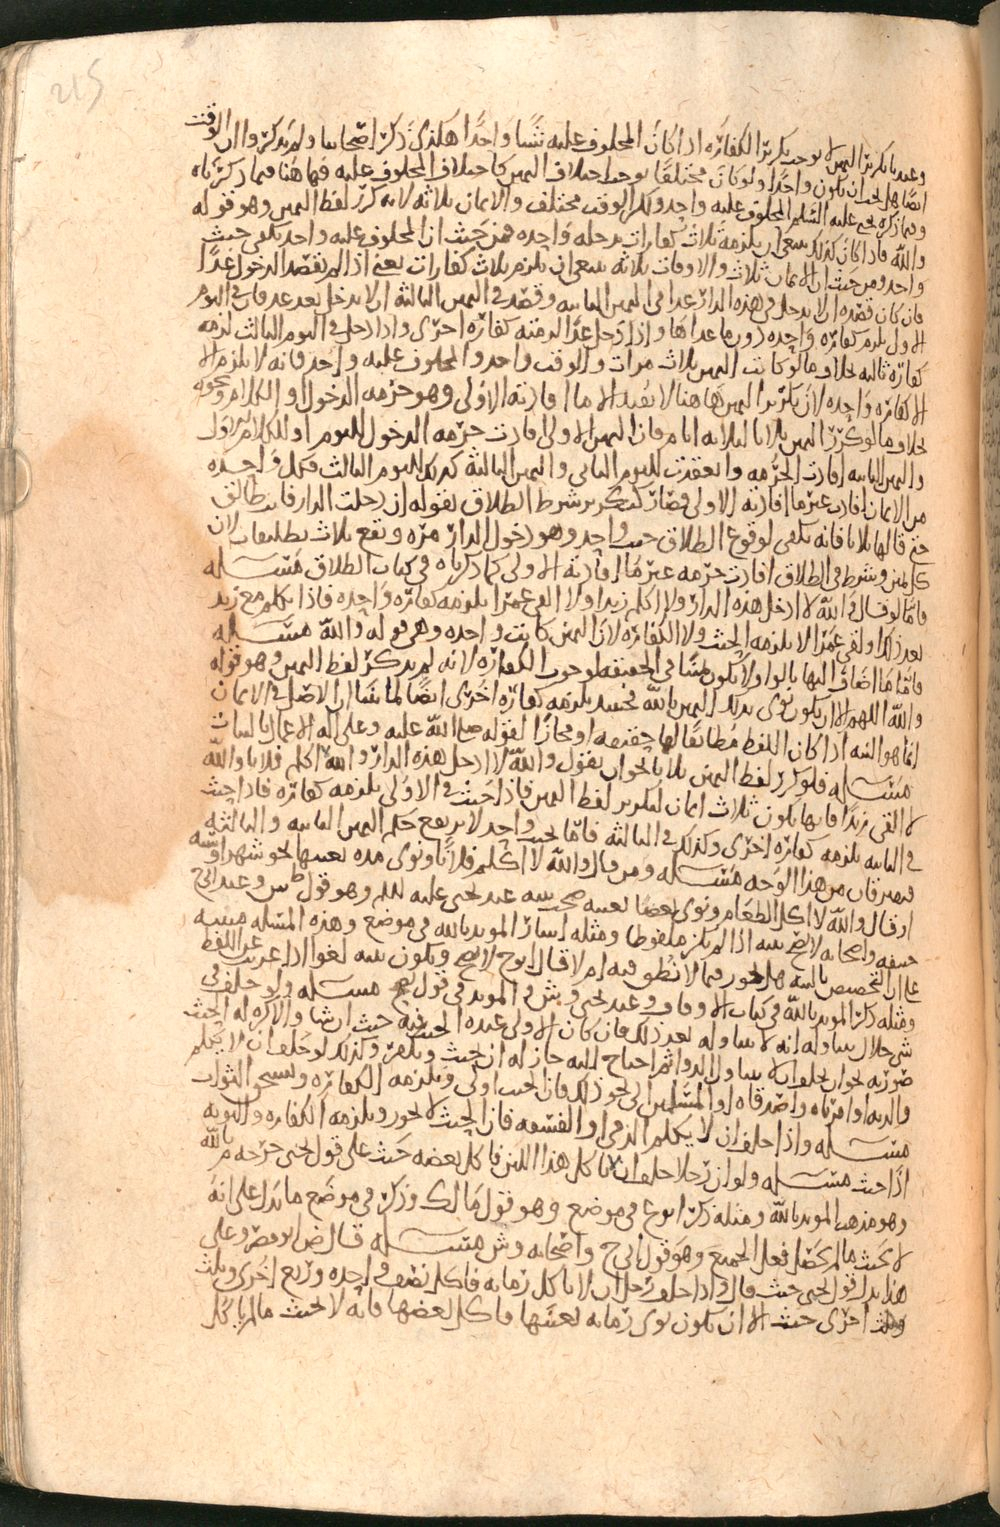 215
وعندنا تكرير اليمين لا يوجب تكرير الكفاره اذا كان المحلوف عليه شيا واحدا هكذي ذكر اصحابنا ولم يذكروا ان الوقت
ايضا هل يجب ان يكون واحدا ولو كان مختلفا يوجب اختلاف اليمين كاختلاف المحلوف عليه فيما هنا فيما ذكرناه
وفيما ذكره يحيى عليه السلم المحلوف عليه واحد ولكن الوقت مختلف والايمان ثلاثه لانه كرر لفظ اليمين وهو قوله
والله فاذا كان كذلك ينبغي ان يلزمه ثلاث كفارات بدخله واحده فمن حيث ان المحلوف عليه واحد يكفي حنث
واحد ومن حيث ان الايمان ثلاث والاوقات ثلاثه ينبغي ان يلزم ثلاث كفارات يعني اذا لم يقصد الدخول غدا
فان كان قصده ان لا يدخل في هذه الدار غدا في اليمين الثانيه وقصد في اليمين الثالثه ان لا يدخل بعد غد فان في اليوم
الاول يلزم كفاره واحده دون ما عداها واذا دخل غدا لزمته كفاره اخرى واذا دخل في اليوم الثالث لزمه
كفاره ثالثه بخلاف ما لو كانت اليمين ثلاث مرات والوقت واحد والمحلوف عليه واحد فانه لا يلزمه
الا كفاره واحده لان تكرير اليمين هاهنا لا يفيد الا ما افادته الاولى وهو حرمه الدخول او الكلام ونحوه
بخلاف ما لو كرر اليمين ثلاثا لثلاثه ايام فان اليمين الاولى افادت حرمه الدخول لليوم او للكلام الاول
واليمين الثانيه افادت الحرمه وانعقدت لليوم الثاني واليمين الثالثه كذلك لليوم الثالث فكل واحده
من الايمان افادت غير ما افادته الاولى فصار كتكرير شرط الطلاق بقوله ان دخلت الدار فانت طالق
حتى قالها ثلاثا فانه يكفي لوقوع الطلاق حنث واحد وهو دخول الدار مره وتقع ثلاث تطليقات لان
كل يمين وشرط في الطلاق افادت حرمه غير ما افادته الاولى كما ذكرناه في كتاب الطلاق مسله
فاما لو قال والله لا ادخل هذه الدار ولا اكلم زيدا ولا القي عمرا يلزمه كفاره واحده فاذا تكلم مع زيد
بعد ذلك او لقي عمرا لا يلزمه الحنث ولا الكفاره لان اليمين كانت واحده وهي قوله والله مسله
فاما ما اضاف اليها بالواو لا يكون يمينا في الحقيقه لوجوب الكفاره لانه لم يذكر لفظ اليمين وهو قوله
والله اللهم الا ان يكون نوى بذلك اليمين بالله فحينئذ يلزمه كفاره اخرى ايضا لما بينا ان الاصل في الايمان
انما هو النيه اذا كان اللفظ مطابقا لها حقيقه او مجازا لقوله صلى الله عليه وعلى اله الاعمال بالنيات
مسله فلو كرر لفظ اليمين ثلاثا نحو ان يقول والله لا ادخل هذه الدار والله لا اكلم فلانا والله
لا القي زيدا فانها تكون ثلاث ايمان لتكرير لفظ اليمين فاذا حنث في الاولى يلزمه كفاره فاذا حنث
في الثانيه يلزمه كفاره اخرى وكذلك في الثالثه فاما بحنث واحد لا يرتفع حكم اليمين الثانيه والثالثه
فيفترقان من هذا الوجه مسله ومن قال والله لا اكلم فلانا ونوى مده بعينها نحو شهر او سنه
او قال والله لا اكل الطعام ونوى بعضا بعينه صحت نيته عند يحيى عليه السلم وهو قول ش وعند ابي
حنيفه واصحابه لا يصح نيته اذا لم يكن ملفوظا ومثله اشار المويد بالله في موضع وهذه المسله مبنيه
على ان التخصيص بالنيه هل يجوز فيما لا نطق فيه ام لا قال ابو ح لا يصح وتكون نيته لغوا اذا عريت عن اللفظ
ومثله ذكر المويد بالله في كتاب الاوقاف وعند يحيى وش والمويد في قول يصح مسله ولو حلف في
شي حلال يتناوله انه لا يتناوله بعد ذلك فان كان الاولى عنده الحنث فيه حنث ان شا والا كره له الحنث
صورته نحو ان يحلف ان لا يتناول الدوا ثم احتاج اليه جاز له ان يحنث ويكفر وكذلك لو حلف ان لا يكلم
والديه او اقرباه واصدقاه او المسلمين الى نحو ذلك فان الحنث اولى ويلزمه الكفاره ويستحق الثواب
مسله واذا حلف ان لا يكلم الذمي او الفسقه فان الحنث لا يجوز ويلزمه الكفاره والتوبه
اذا حنث مسله ولو ان رجلا حلف ان لا ياكل هذا اللبن فاكل بعضه حنث على قول يحيى خرجه م بالله
وهو مذهب المويد بالله ومثله ذكر ابو ع في موضع وهو قول مالك وذكر في موضع ما يدل على انه
لا يحنث ما لم يحصل فعل الجميع وهو قول ابي ح واصحابه وش مسله قال ض ابو مضر وعلى
هذا يدل قول يحيى حيث قال واذا حلف رجل ان لا ياكل رمانه فاكل نصف واحده وربع اخرى وثلث
وثلث اخرى حنث الا ان يكون نوى رمانه بعينها فاكل بعضها فانه لا يحنث ما لم ياكل